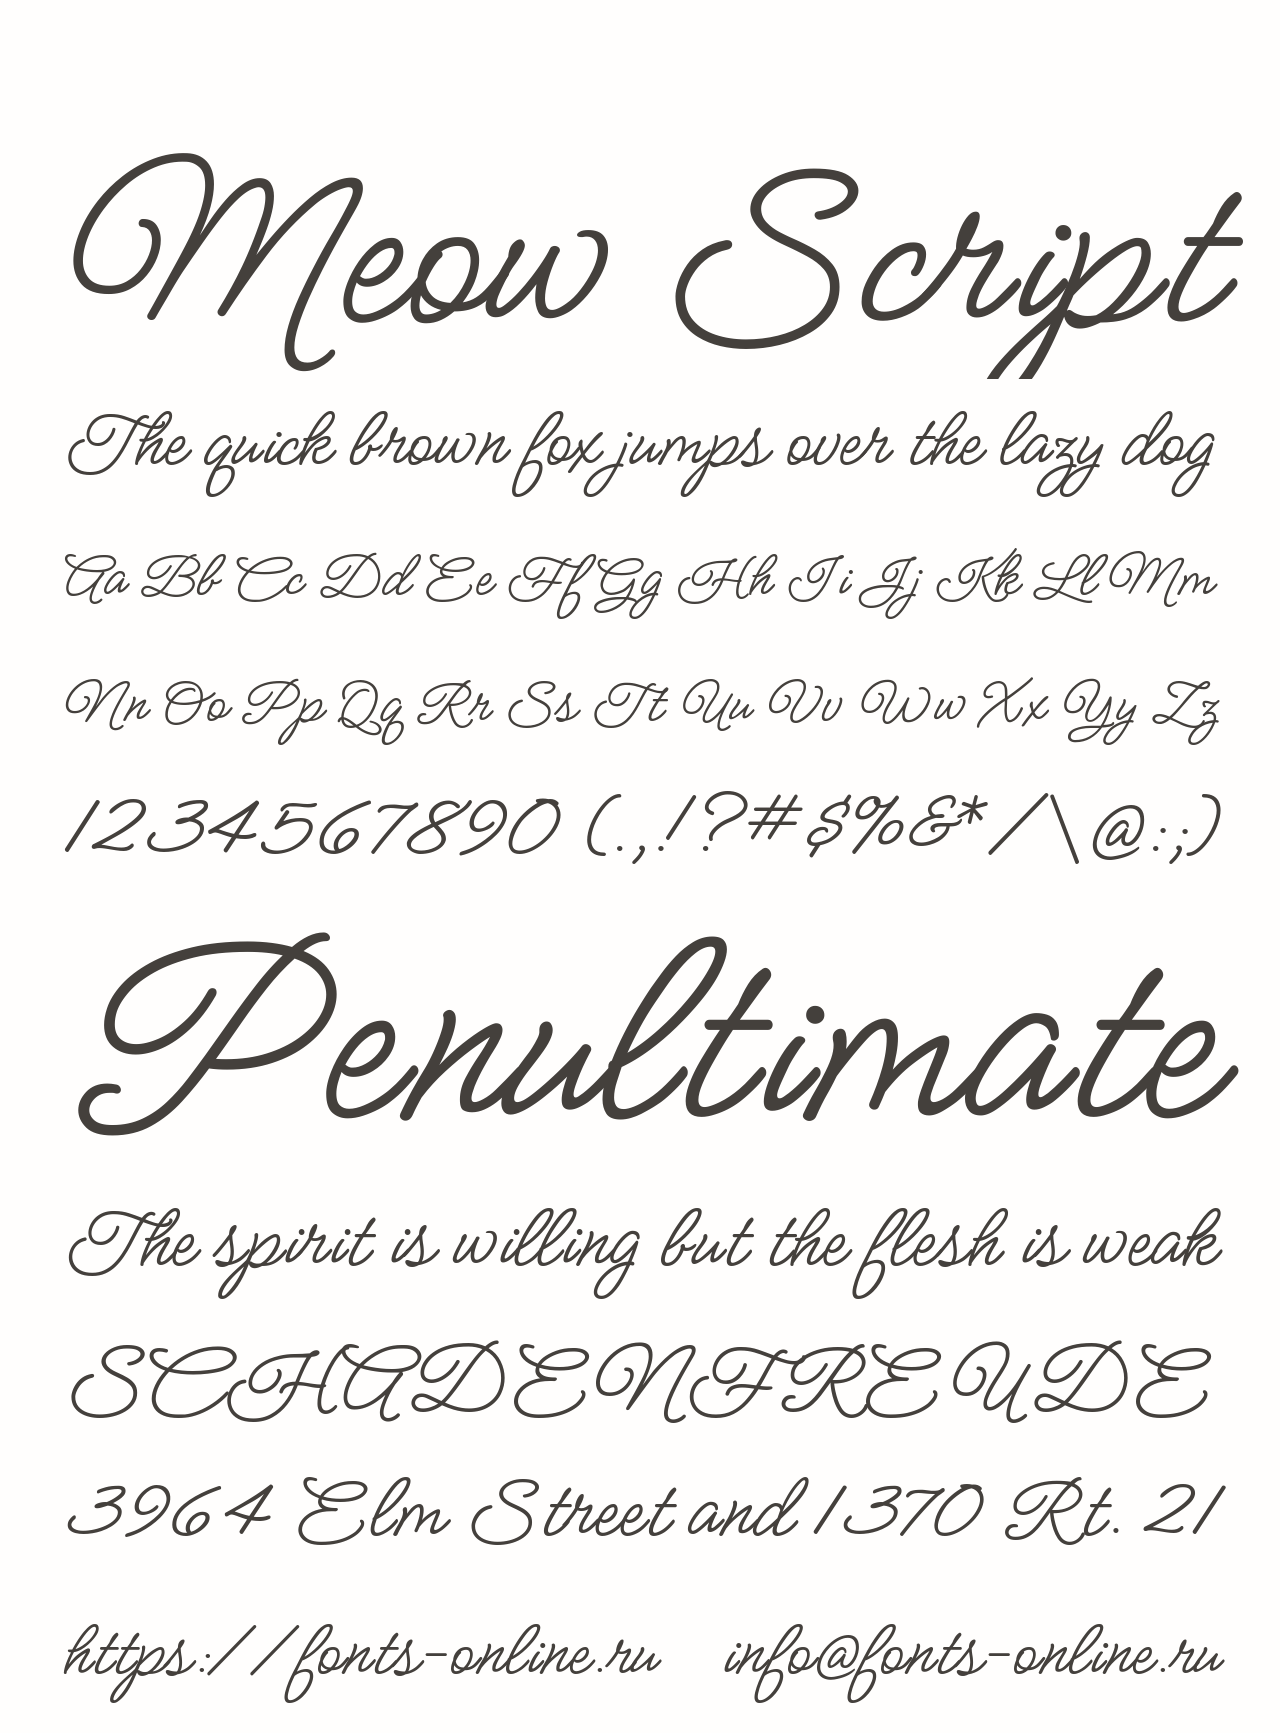 Meow Script
The quick brown fox jumps over the lazy dog
Aa Bb Cc Dd Ee Ff Gg Hh Ii Jj Kk Ll Mm
Nn Oo Pp Qq Rr Ss Tt Uu Vv Ww Xx Yy Zz
1234567890 (.,!?#$%&*/\@:;)
Penultimate
The spirit is willing but the flesh is weak
SCHADENFREUDE
3964 Elm Street and 1370 Rt. 21
https://fonts-online.ru info@fonts-online.ru